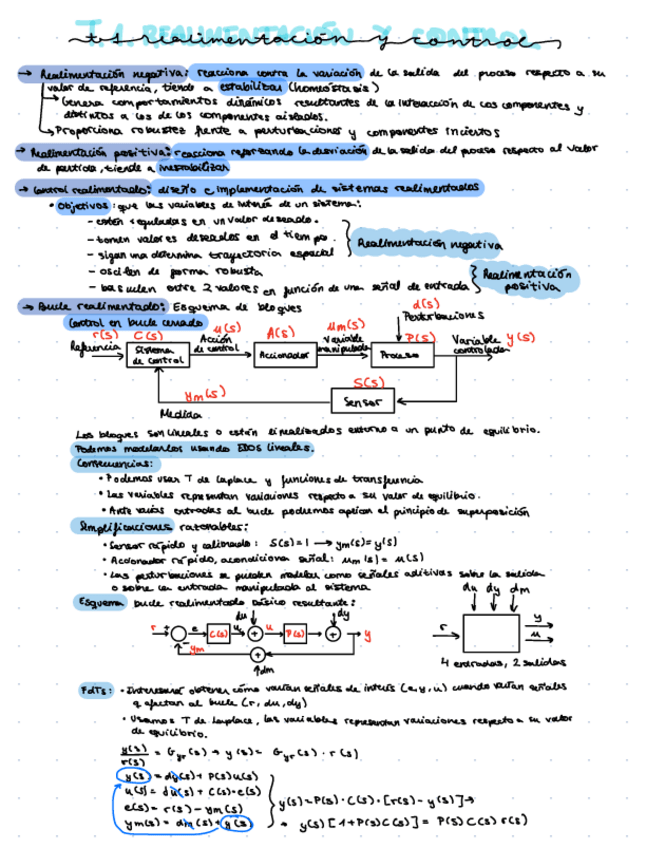 T.1. REALIMENTACIÓN Y CONTROL
t.1 realimentación y control
→ Realimentación negativa: reacciona contra la variación de la salida del proceso respecto a su
valor de referencia, tiende a estabilizar (homeóstasis)
→ Genera comportamientos dinámicos resultantes de la interacción de los componentes y
distintos a los de los componentes aislados.
→ Proporciona robustez frente a perturbaciones y componentes inciertos
→ Realimentación positiva: reacciona reforzando la desviación de la salida del proceso respecto al valor
de partida, tiende a inestabilizar
→ Control realimentado: diseño e implementación de sistemas realimentados
• Objetivos: que las variables de interés de un sistema:
- estén reguladas en un valor deseado.
- tomen valores deseados en el tiempo.
- sigan una determina trayectoria espacial
Realimentación negativa
- oscilen de forma robusta
- basculen entre 2 valores en función de una señal de entrada
Realimentación positiva
→ Bucle realimentado: Esquema de bloques
Control en bucle cerrado
d(s)
Perturbaciones
r(s) C(s) u(s) A(s) um(s) P(s) y(s)
Referencia
Sistema de control
Acción de control
Accionador
Variable manipulada
Proceso
Variable controlada
S(s)
Sensor
ym(s)
Medida
Los bloques son lineales o están linealizados entorno a un punto de equilibrio.
Podemos modelarlos usando EDOS lineales.
Consecuencias:
• Podemos usar T de Laplace y funciones de transferencia
• Las variables representan variaciones respecto a su valor de equilibrio.
• Ante varias entradas al bucle podremos aplicar el principio de superposición
Simplificaciones razonables:
• Sensor rápido y calibrado: S(s)=1 → ym(s)=y(s)
• Accionador rápido, acondiciona señal: um(s)=u(s)
• Las perturbaciones se pueden modelar como señales aditivas sobre la salida
o sobre la entrada manipulada al sistema
Esquema bucle realimentado básico resultante:
du dy
r + - e C(s) u + u P(s) + y
ym
+
dm
du dy dm
r
y
u
4 entradas, 2 salidas
FdTs: • Interesará obtener cómo varían señales de interés (e,y,u) cuando varían señales
q afectan al bucle (r, du, dy)
• Usamos T de Laplace, las variables representan variaciones respecto a su valor
de equilibrio.
y(s)/r(s) = Gyr(s) → y(s)= Gyr(s) · r(s)
y(s) = dy(s) + P(s)u(s)
u(s)= du(s) + C(s)·e(s)
e(s)= r(s) - ym(s)
ym(s)= dm(s) + y(s)
y(s)=P(s)·C(s)·[r(s)-y(s)] →
→ y(s)[1+P(s)C(s)] = P(s)C(s)r(s)